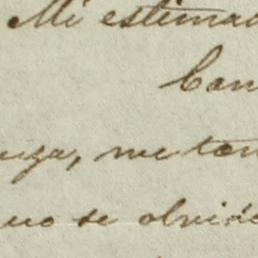 Mi estimad
Con
uza, me ten
no se olvide